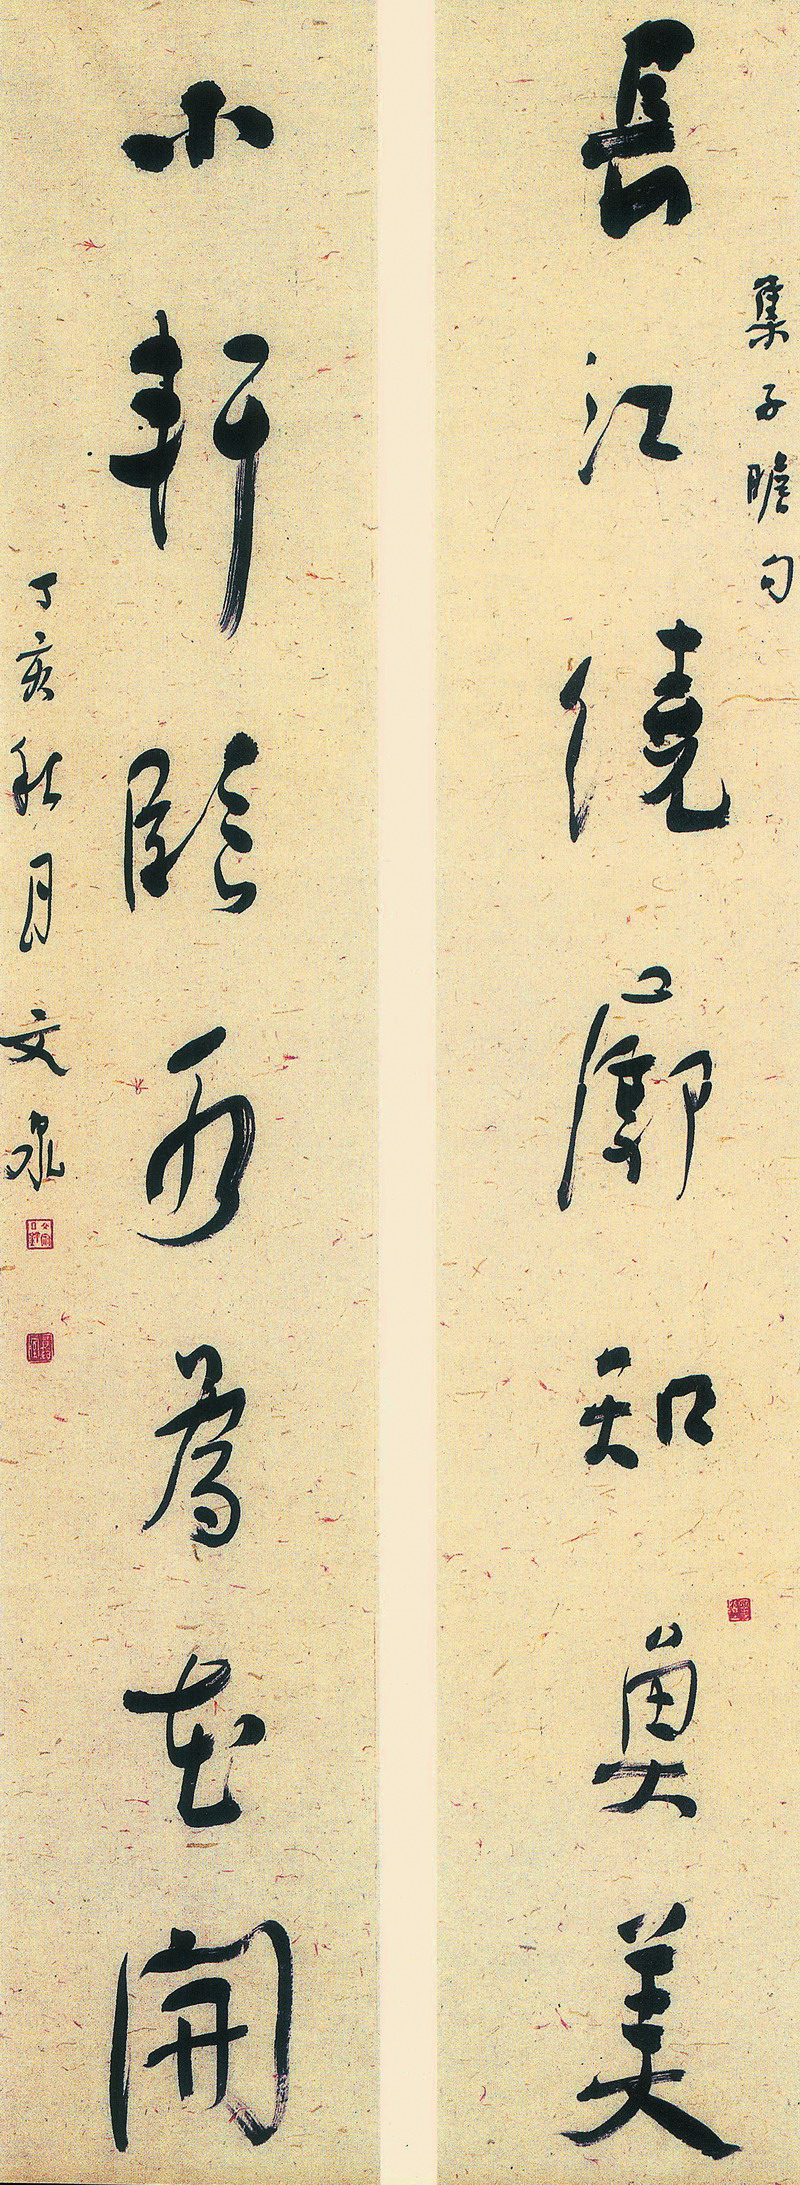 集子瞻句
長江繞廓知魚美
小軒臨水為花開
丁亥秋月 文泉